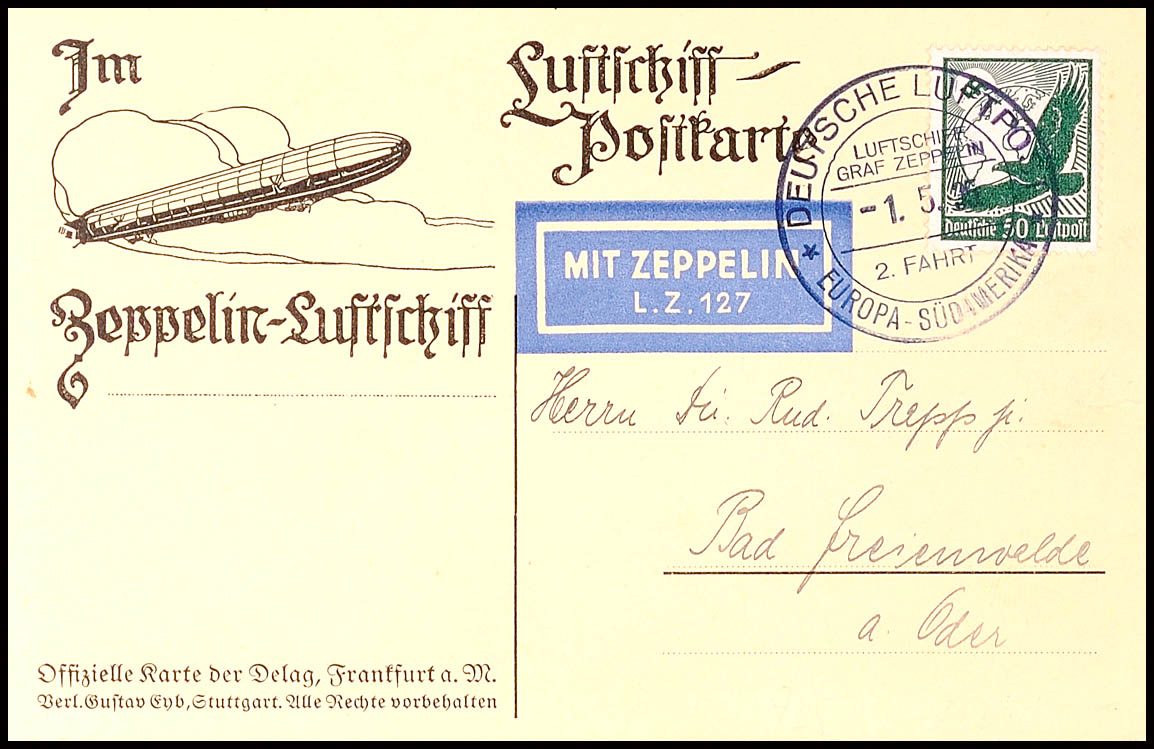 Im
Zeppelin-Luftschiff
Luftschiff-
Postkarte
MIT ZEPPELIN
L.Z.127
DEUTSCHE LUFTPO
LUFTSCHIFF
GRAF ZEPPELIN
-1. 5.
2. FAHRT
* EUROPA-SÜDAMERIKA
Deutsche 50 Luftpost
Herrn Rud. Trepp jr.
Bad Freienwalde
a. Oder
Offizielle Karte der Delag, Frankfurt a. M.
Verl. Gustav Eyb, Stuttgart. Alle Rechte vorbehalten